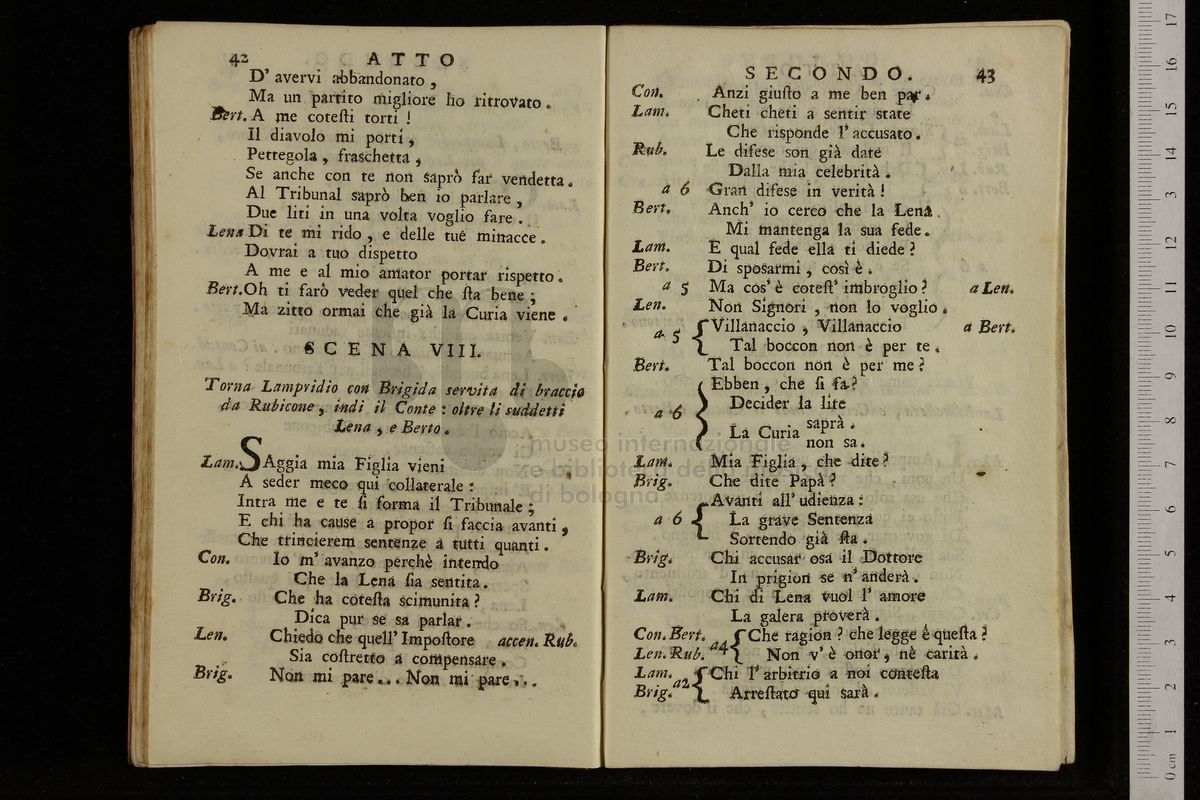 42 ATTO
D' avervi abbandonato,
Ma un partito migliore ho ritrovato.
Bert. A me cotesti torti!
Il diavolo mi porti,
Pettegola, fraschetta,
Se anche con te non saprò far vendetta.
Al Tribunal saprò ben io parlare,
Due liti in una volta voglio fare.
Lena Di te mi rido, e delle tue minacce.
Dovrai a tuo dispetto
A me e al mio amator portar rispetto.
Bert. Oh ti farò veder quel che sta bene;
Ma zitto ormai che già la Curia viene.
SCENA VIII.
Torna Lampridio con Brigida servita di braccio
da Rubicone, indi il Conte: oltre li suddetti
Lena, e Berto.
Lam. SAggia mia Figlia vieni
A seder meco qui collaterale:
Intra me e te si forma il Tribunale;
E chi ha cause a propor si faccia avanti,
Che trincierem sentenze a tutti quanti.
Con. Io m' avanzo perchè intendo
Che la Lena sia sentita.
Brig. Che ha cotesta scimunita?
Dica pur se sa parlar.
Len. Chiedo che quell' Impostore accen. Rub.
Sia costretto a compensare.
Brig. Non mi pare... Non mi pare...
SECONDO. 43
Con. Anzi giusto a me ben par.
Lam. Cheti cheti a sentir state
Che risponde l' accusato.
Rub. Le difese son già date
Dalla mia celebrità.
a 6 Gran difese in verità!
Bert. Anch' io cerco che la Lena
Mi mantenga la sua fede.
Lam. E qual fede ella ti diede?
Bert. Di sposarmi, così è.
a 5 Ma cos' è cotest' imbroglio? a Len.
Len. Non Signori, non lo voglio.
a 5 { Villanaccio, Villanaccio a Bert.
Tal boccon non è per te.
Bert. Tal boccon non è per me?
a 6 { Ebben, che si fa?
Decider la lite
La Curia saprà.
non sa.
Lam. Mia Figlia, che dite?
Brig. Che dite Papà?
a 6 { Avanti all' udienza:
La grave Sentenza
Sortendo già sta.
Brig. Chi accusar osa il Dottore
In prigion se n' anderà.
Lam. Chi di Lena vuol l' amore
La galera proverà.
Con. Bert. a4 { Che ragion? che legge è questa?
Len. Rub. Non v' è onor, nè carità.
Lam. a2 { Chi l' arbitrio a noi contesta
Brig. Arrestato qui sarà.
museo internazionale
e biblioteca della musica
di bologna
0 cm 1 2 3 4 5 6 7 8 9 10 11 12 13 14 15 16 17